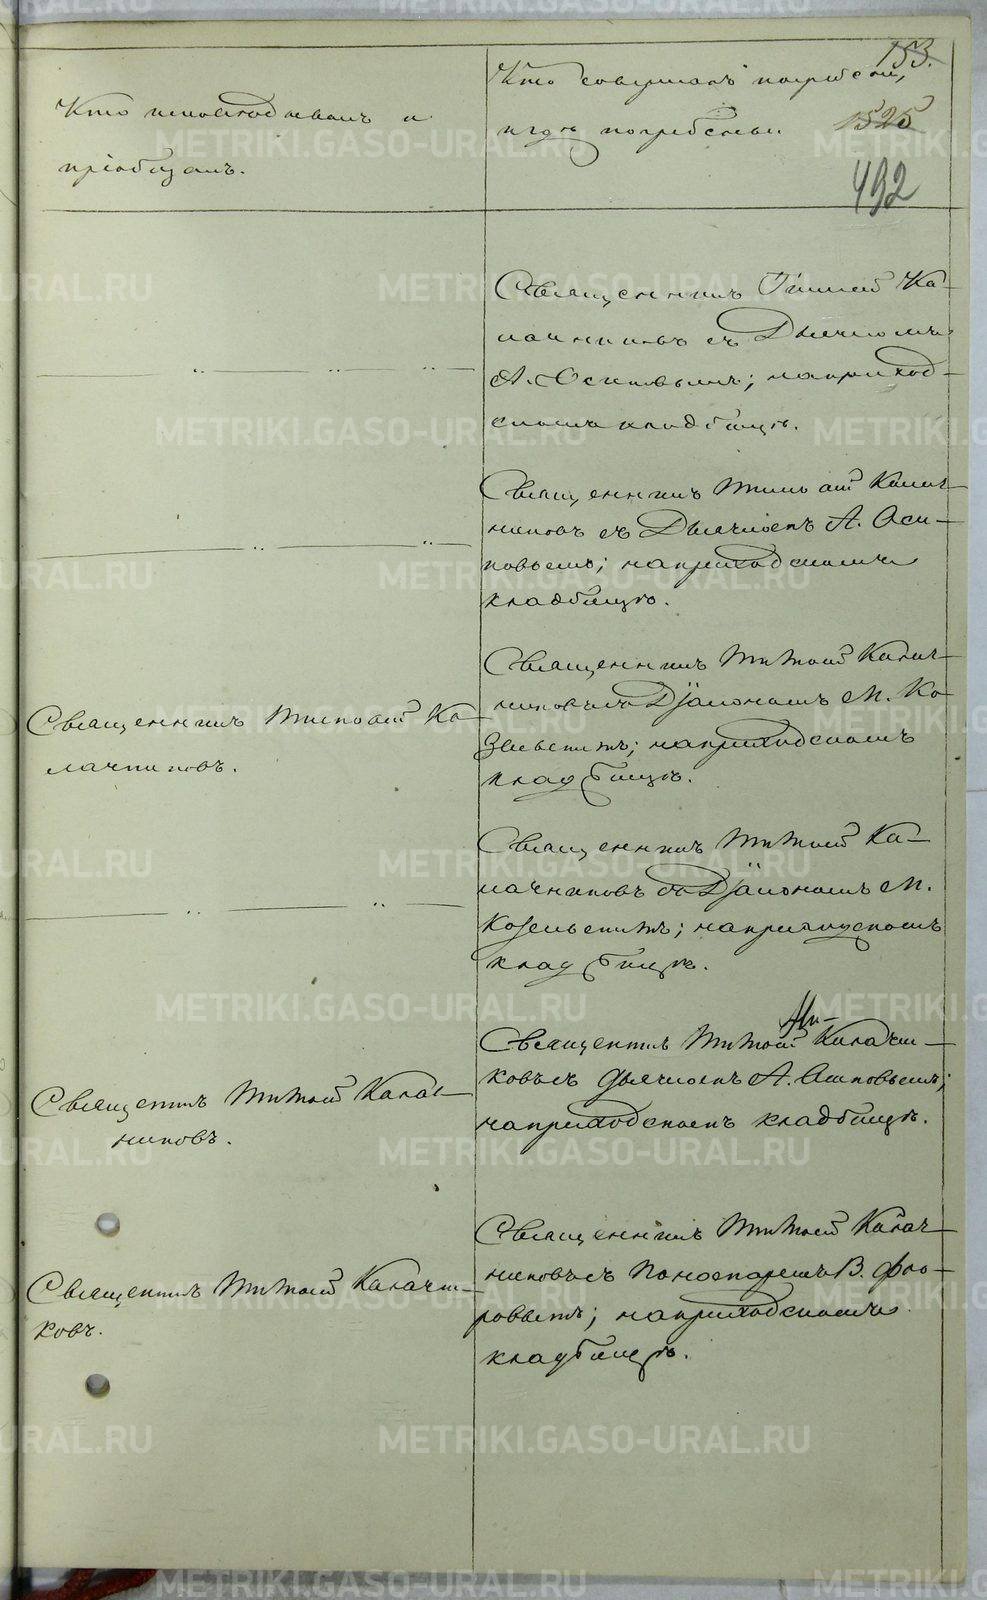 153.
Кто исповѣдывалъ и
пріобщалъ.
Кто совершалъ погребеніе,
и гдѣ погребены.
1525
492
Священникъ Тимоѳей Ка-
лачниковъ съ Дьячкомъ
А. Осиповымъ; на приход-
скомъ кладбищѣ.
Священникъ Тимоѳей Калач-
никовъ съ Дьячкомъ А. Оси-
повымъ; на приходскомъ
кладбищѣ.
Священникъ Тимоѳей Ка-
лачниковъ.
Священникъ Тимоѳей Калач-
никовъ съ Діакономъ М. Ко
зельскимъ; на приходскомъ
кладбищѣ.
Священникъ Тимоѳей Ка-
лачниковъ съ Діакономъ М.
Козельскимъ; на приходскомъ
кладбищѣ.
Священникъ Тимоѳей Калач-
никовъ.
Священникъ Тимоѳей Калачни-
ковъ съ Дьячкомъ А. Осиповымъ;
на приходскомъ кладбищѣ.
Священникъ Тимоѳей Калачни-
ковъ.
Священникъ Тимоѳей Калач-
никовъ съ Пономаремъ В. Фло-
ровымъ; на приходскомъ
кладбищѣ.
METRIKI.GASO-URAL.RU